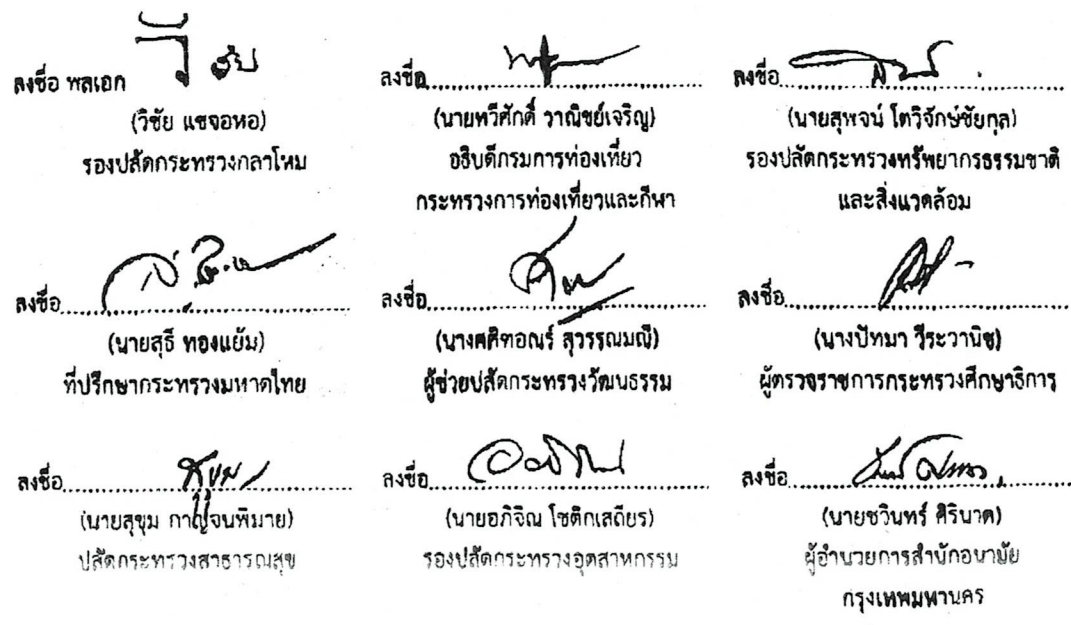 ลงชื่อ พลเอก
(วิชัย แชจอหอ)
รองปลัดกระทรวงกลาโหม
ลงชื่อ
(นายทวีศักดิ์ วาณิชย์เจริญ)
อธิบดีกรมการท่องเที่ยว
กระทรวงการท่องเที่ยวและกีฬา
ลงชื่อ
(นายสุพจน์ โตวิจักษ์ชัยกุล)
รองปลัดกระทรวงทรัพยากรธรรมชาติ
และสิ่งแวดล้อม
ลงชื่อ
(นายสุธี ทองแย้ม)
ที่ปรึกษากระทรวงมหาดไทย
ลงชื่อ
(นางศศิฑอณร์ สุวรรณมณี)
ผู้ช่วยปลัดกระทรวงวัฒนธรรม
ลงชื่อ
(นางปัทมา วีระวานิช)
ผู้ตรวจราชการกระทรวงศึกษาธิการ
ลงชื่อ
(นายสุขุม กาญจนพิมาย)
ปลัดกระทรวงสาธารณสุข
ลงชื่อ
(นายอภิจิณ โชติกเสถียร)
รองปลัดกระทรวงอุตสาหกรรม
ลงชื่อ
(นายชวินทร์ ศิรินาค)
ผู้อำนวยการสำนักอนามัย
กรุงเทพมหานคร